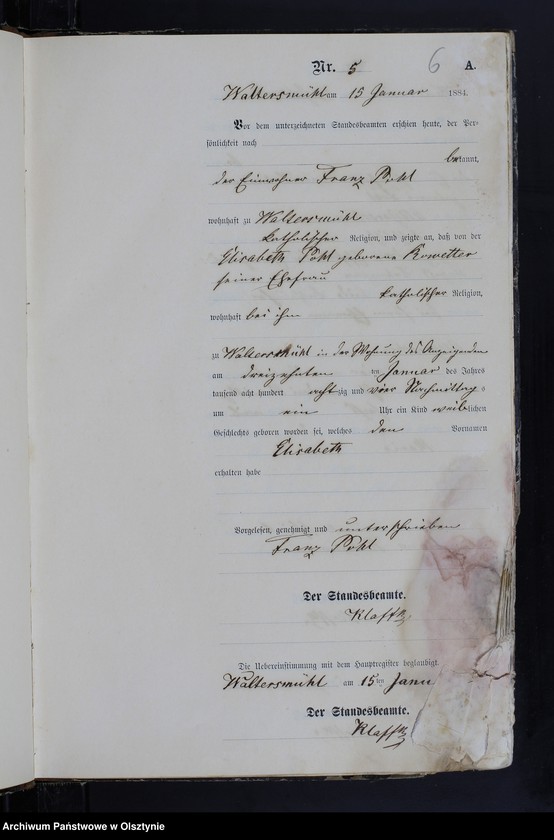 6
Nr. 5 A.
Waltersmühl am 15 Januar 1884.
Vor dem unterzeichneten Standesbeamten erschien heute, der Per-
sönlichkeit nach
bekannt,
der Einwohner Franz Pohl
wohnhaft zu Waltersmühl
katholischer Religion, und zeigte an, daß von der
Elisabeth Pohl geborene Kowetter
seiner Ehefrau
katholischer Religion,
wohnhaft bei ihm
zu Waltersmühl in der Wohnung des Anzeigenden
am dreizehnten ten Januar des Jahres
tausend acht hundert achtzig und vier Nachmittags
um ein Uhr ein Kind weiblichen
Geschlechts geboren worden sei, welches den Vornamen
Elisabeth
erhalten habe
Vorgelesen, genehmigt und unterschrieben
Franz Pohl
Der Standesbeamte.
Klafft
Die Uebereinstimmung mit dem Hauptregister beglaubigt.
Waltersmühl am 15ten Janu
Der Standesbeamte.
Klafft
Archiwum Państwowe w Olsztynie